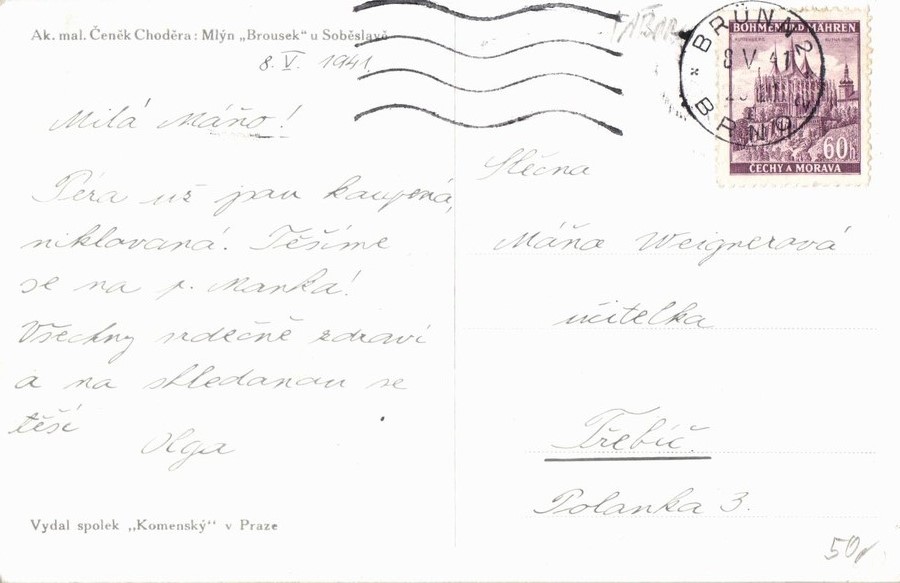 Ak. mal. Čeněk Choděra: Mlýn „Brousek“ u Soběslavě
8. V. 1941
Milá Máňo!
Pera už jsou koupená,
niklovaná. Těšíme
se na p. Maňka!
Všechny srdečně zdraví
a na shledanou se
těší
Olga
Vydal spolek „Komenský“ v Praze
BRÜNN 2
8 V. 41
BRNO
BÖHMEN UND MÄHREN
60h
ČECHY A MORAVA
Slečna
Máňa Weignerová
učitelka
Třebíč.
Polanka 3.